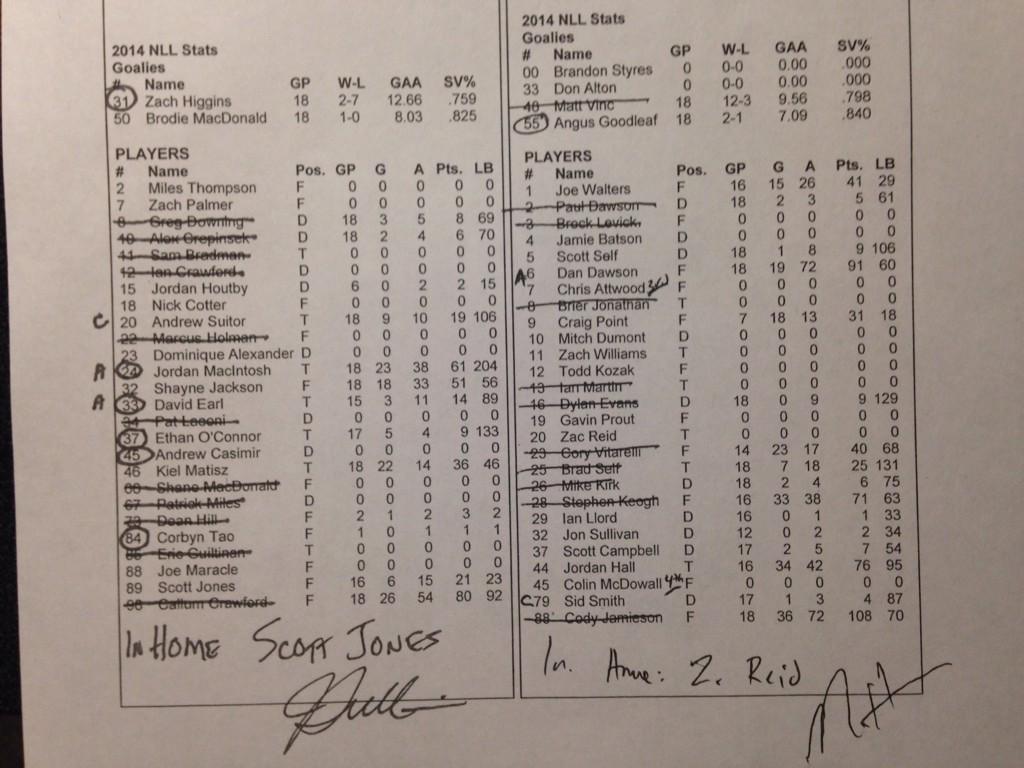 2014 NLL Stats
Goalies
# Name GP W-L GAA SV%
31 Zach Higgins 18 2-7 12.66 .759
50 Brodie MacDonald 18 1-0 8.03 .825
PLAYERS
# Name Pos. GP G A Pts. LB
2 Miles Thompson F 0 0 0 0 0
7 Zach Palmer F 0 0 0 0 0
8 Greg Downing D 18 3 5 8 69
10 Alex Crepinsek D 18 2 4 6 70
11 Sam Bradman T 0 0 0 0 0
12 Ian Crawford D 0 0 0 0 0
15 Jordan Houtby D 6 0 2 2 15
18 Nick Cotter F 0 0 0 0 0
C 20 Andrew Suitor T 18 9 10 19 106
22 Marcus Holman F 0 0 0 0 0
23 Dominique Alexander D 0 0 0 0 0
A 24 Jordan MacIntosh T 18 23 38 61 204
32 Shayne Jackson F 18 18 33 51 56
A 33 David Earl T 15 3 11 14 89
34 Pat Leconi D 0 0 0 0 0
37 Ethan O'Connor T 17 5 4 9 133
45 Andrew Casimir D 0 0 0 0 0
46 Kiel Matisz T 18 22 14 36 46
Shane MacDonald F 0 0 0 0 0
67 Patrick Miles D 0 0 0 0 0
73 Dean Hill F 2 1 2 3 2
84 Corbyn Tao F 1 0 1 1 1
Eric Guiltinan T 0 0 0 0 0
88 Joe Maracle F 0 0 0 0 0
89 Scott Jones F 16 6 15 21 23
Callum Crawford F 18 26 54 80 92
In HOME SCOTT JONES
2014 NLL Stats
Goalies
# Name GP W-L GAA SV%
00 Brandon Styres 0 0-0 0.00 .000
33 Don Alton 0 0-0 0.00 .000
Matt Vinc 18 12-3 9.56 .798
55 Angus Goodleaf 18 2-1 7.09 .840
PLAYERS
# Name Pos. GP G A Pts. LB
1 Joe Walters F 16 15 26 41 29
2 Paul Dawson D 18 2 3 5 61
3 Brock Levick F 0 0 0 0 0
4 Jamie Batson D 0 0 0 0 0
5 Scott Self D 18 1 8 9 106
A 6 Dan Dawson F 18 19 72 91 60
7 Chris Attwood F 0 0 0 0 0
8 Brier Jonathan T 0 0 0 0 0
9 Craig Point F 7 18 13 31 18
10 Mitch Dumont D 0 0 0 0 0
11 Zach Williams T 0 0 0 0 0
12 Todd Kozak F 0 0 0 0 0
13 Ian Martin T 0 0 0 0 0
16 Dylan Evans D 18 0 9 9 129
19 Gavin Prout F 0 0 0 0 0
20 Zac Reid T 0 0 0 0 0
23 Cory Vitarelli F 14 23 17 40 68
25 Brad Self T 18 7 18 25 131
26 Mike Kirk D 18 2 4 6 75
28 Stephen Keogh F 16 33 38 71 63
29 Ian Llord D 16 0 1 1 33
32 Jon Sullivan D 12 0 2 2 34
37 Scott Campbell D 17 2 5 7 54
44 Jordan Hall T 16 34 42 76 95
45 Colin McDowall 4th F 0 0 0 0 0
C 79 Sid Smith D 17 1 3 4 87
88 Cody Jamieson F 18 36 72 108 70
In. Z. Reid